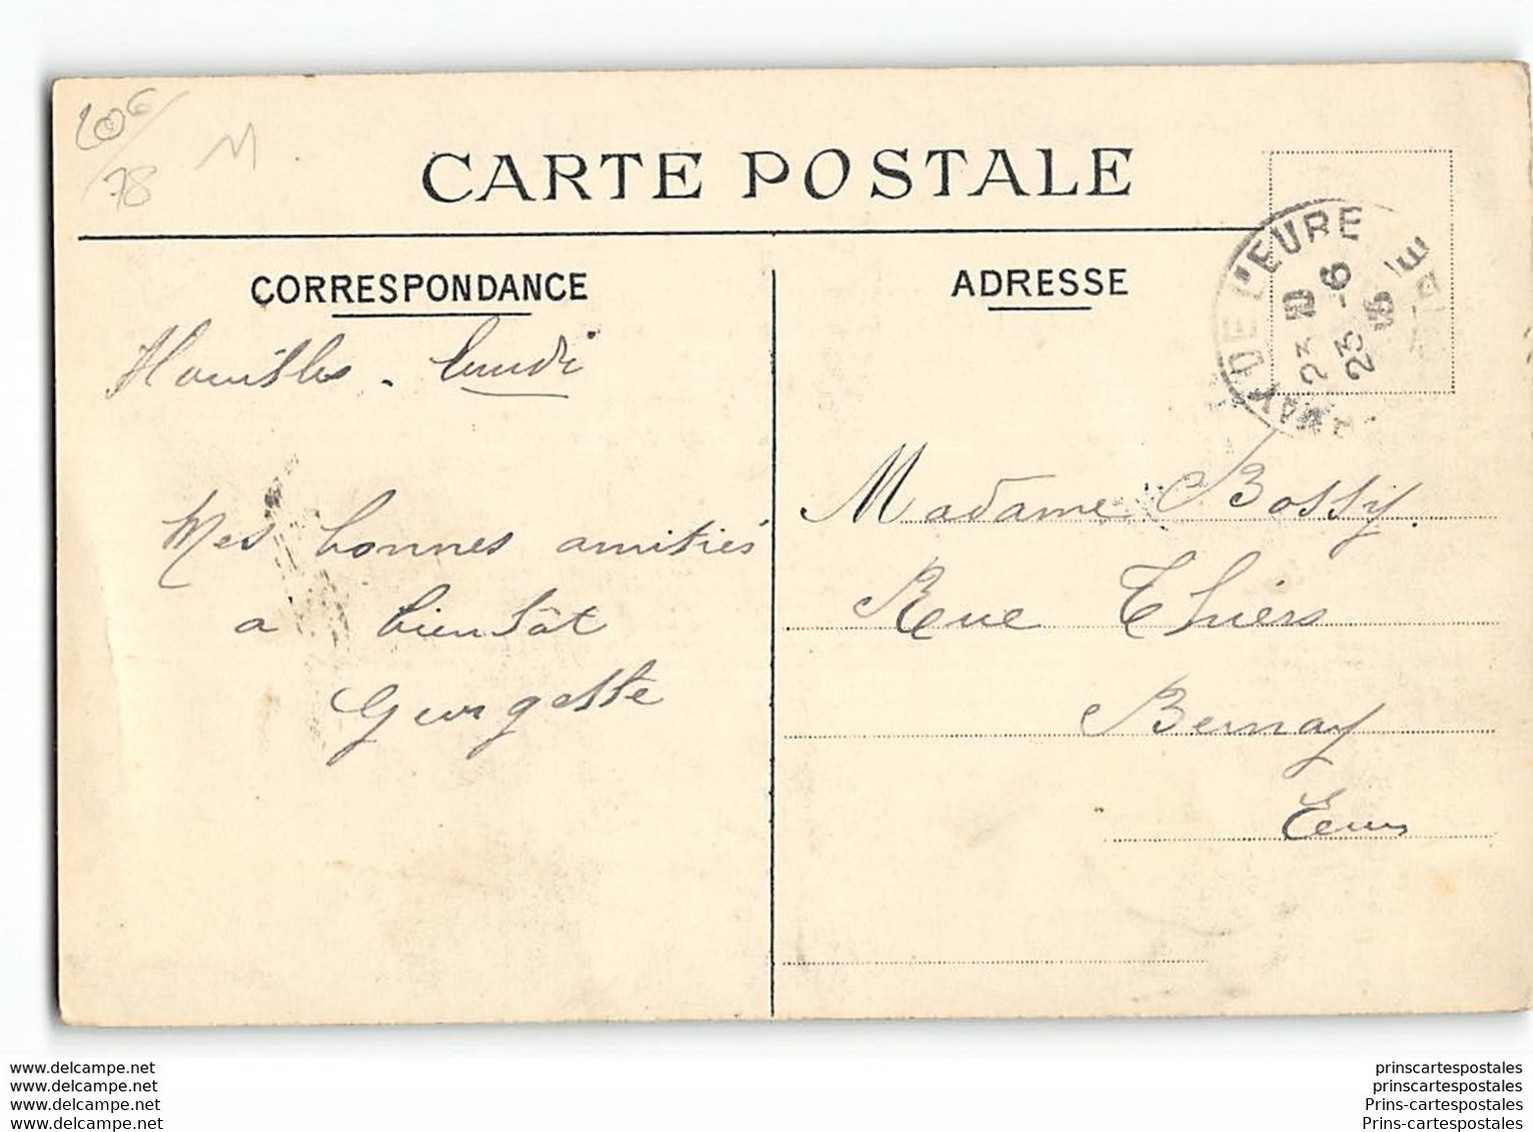 20€/
78
M
CARTE POSTALE
CORRESPONDANCE
ADRESSE
DE L'EURE
23 10
23 -6
Houilles - lundi
Mes bonnes amitiés
a bientôt
Georgette
Madame Bossy
Rue Thiers
Bernay
Eure
www.delcampe.net
www.delcampe.net
www.delcampe.net
www.delcampe.net
prinscartespostales
prinscartespostales
Prins-cartespostales
Prins-cartespostales